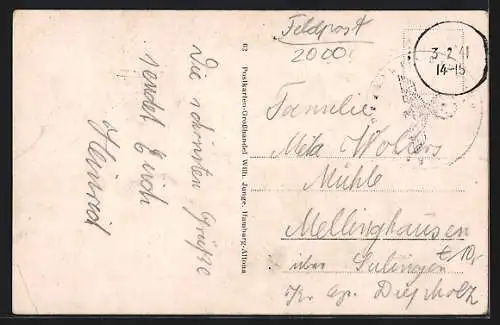 Feldpost
2000
3.2.41
14-15
Die schönsten Grüsse
sendet Euch
Heinrod
63 Postkarten-Großhandel Wilh. Junge, Hamburg-Altona
Familie
Meta Wolters
Mühle
Mellinghausen
über Sulingen
Diepholz